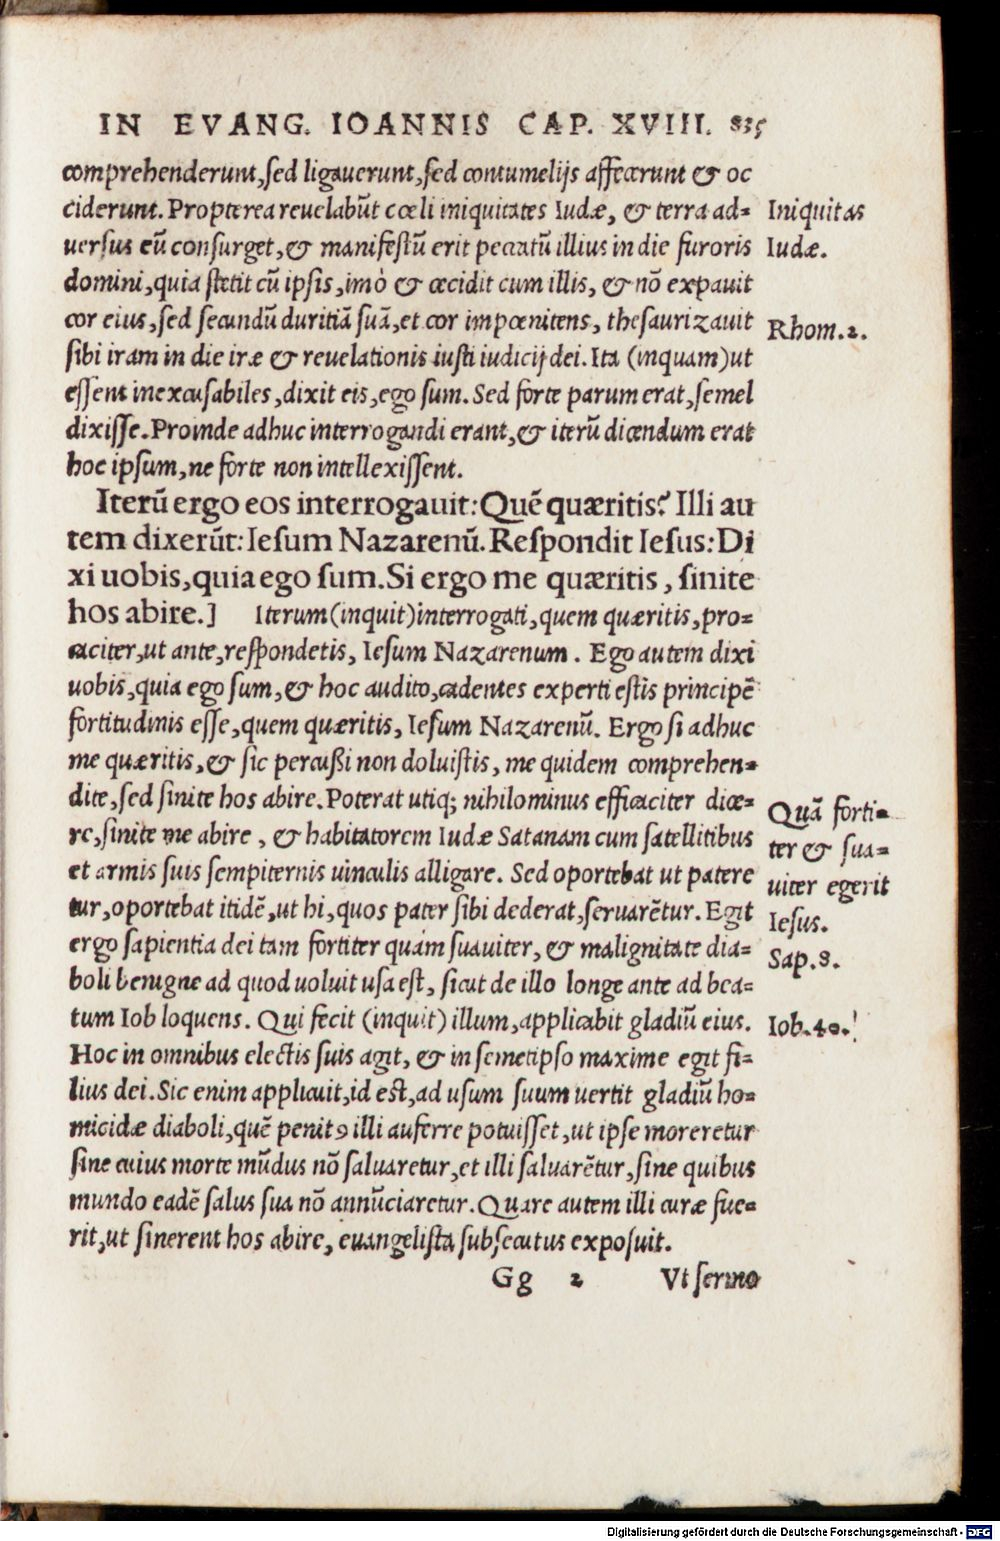 IN EVANG. IOANNIS CAP. XVIII. 835
comprehenderunt, sed ligauerunt, sed contumelijs affecerunt & oc
ciderunt. Propterea reuelabūt cœli iniquitates Iudæ, & terra ad-
uersus eū consurget, & manifestū erit peccatū illius in die furoris
domini, quia stetit cū ipsis, imò & cecidit cum illis, & nō expauit
cor eius, sed secundū duritiā suā, et cor impœnitens, thesaurizauit
sibi iram in die iræ & reuelationis iusti iudicij dei. Ita (inquam) ut
essent inexcusabiles, dixit eis, ego sum. Sed forte parum erat, semel
dixisse. Proinde adhuc interrogandi erant, & iterū dicendum erat
hoc ipsum, ne forte non intellexissent.
Iniquitas
Iudæ.
Rhom. 2.
Iterū ergo eos interrogauit: Quē quæritis? Illi au
tem dixerūt: Iesum Nazarenū. Respondit Iesus: Di
xi uobis, quia ego sum. Si ergo me quæritis, sinite
hos abire.] Iterum (inquit) interrogati, quem quæritis, pro-
caciter, ut ante, respondetis, Iesum Nazarenum. Ego autem dixi
uobis, quia ego sum, & hoc audito, cadentes experti estis principē
fortitudinis esse, quem quæritis, Iesum Nazarenū. Ergo si adhuc
me quæritis, & sic percußi non doluistis, me quidem comprehen-
dite, sed sinite hos abire. Poterat utiq; nihilominus efficaciter dice-
re, sinite me abire, & habitatorem Iudæ Satanam cum satellitibus
et armis suis sempiternis uinculis alligare. Sed oportebat ut patere
tur, oportebat itidē, ut hi, quos pater sibi dederat, seruarētur. Egit
ergo sapientia dei tam fortiter quàm suauiter, & malignitate dia-
boli benigne ad quod uoluit usa est, sicut de illo longe ante ad bea-
tum Iob loquens. Qui fecit (inquit) illum, applicabit gladiū eius.
Hoc in omnibus electis suis agit, & in semetipso maxime egit fi-
lius dei. Sic enim applicuit, id est, ad usum suum uertit gladiū ho-
micidæ diaboli, quē penitꝰ illi auferre potuisset, ut ipse moreretur
sine cuius morte mūdus nō saluaretur, et illi saluarētur, sine quibus
mundo eadē salus sua nō annūciaretur. Quare autem illi curæ fue-
rit, ut sinerent hos abire, euangelista subsecutus exposuit.
Quā forti-
ter & sua-
uiter egerit
Iesus.
Sap. 8.
Iob. 40.
Gg 2 Vt sermo
Digitalisierung gefördert durch die Deutsche Forschungsgemeinschaft - DFG